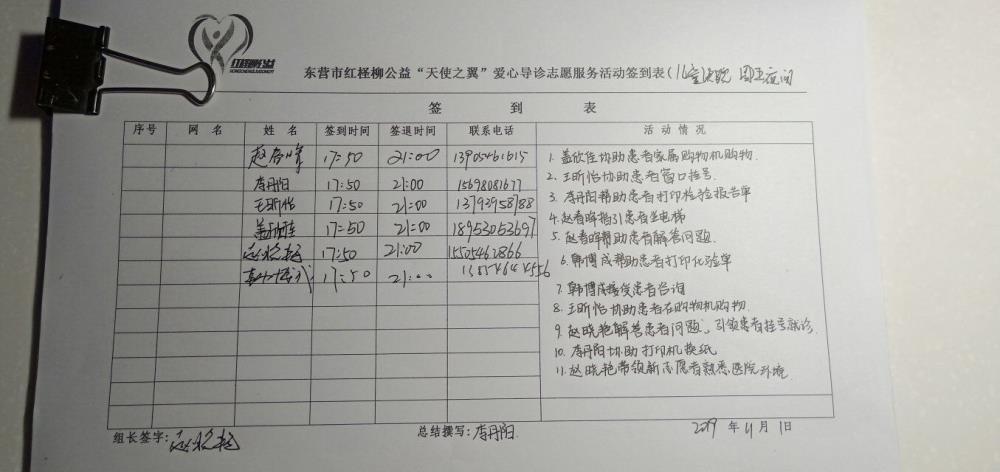 红柽柳公益
东营市红柽柳公益“天使之翼”爱心导诊志愿服务活动签到表(儿童医院 周五夜间
签 到 表
序号 网 名 姓 名 签到时间 签退时间 联系电话 活 动 情 况
赵春晖 17:50 21:00 13905461615
李丹阳 17:50 21:00 15698081677
王昕怡 17:50 21:00 13793958788
盖欣佳 17:50 21:00 18953053697
赵晓艳 17:50 21:00 15505462866
韩博成 17:50 21:00
1. 盖欣佳协助患者家属购物机购物.
2. 王昕怡协助患者窗口挂号.
3. 李丹阳帮助患者打印检验报告单
4. 赵春晖指引患者坐电梯
5. 赵春晖帮助患者解答问题.
6. 韩博成帮助患者打印化验单
7. 韩博成接受患者咨询
8. 王昕怡协助患者在购物机购物.
9. 赵晓艳解答患者问题、引领患者挂号就诊
10. 李丹阳协助打印机换纸
11. 赵晓艳带领新志愿者熟悉医院环境.
组长签字: 赵晓艳 总结撰写: 李丹阳. 2019 年 11 月 1日